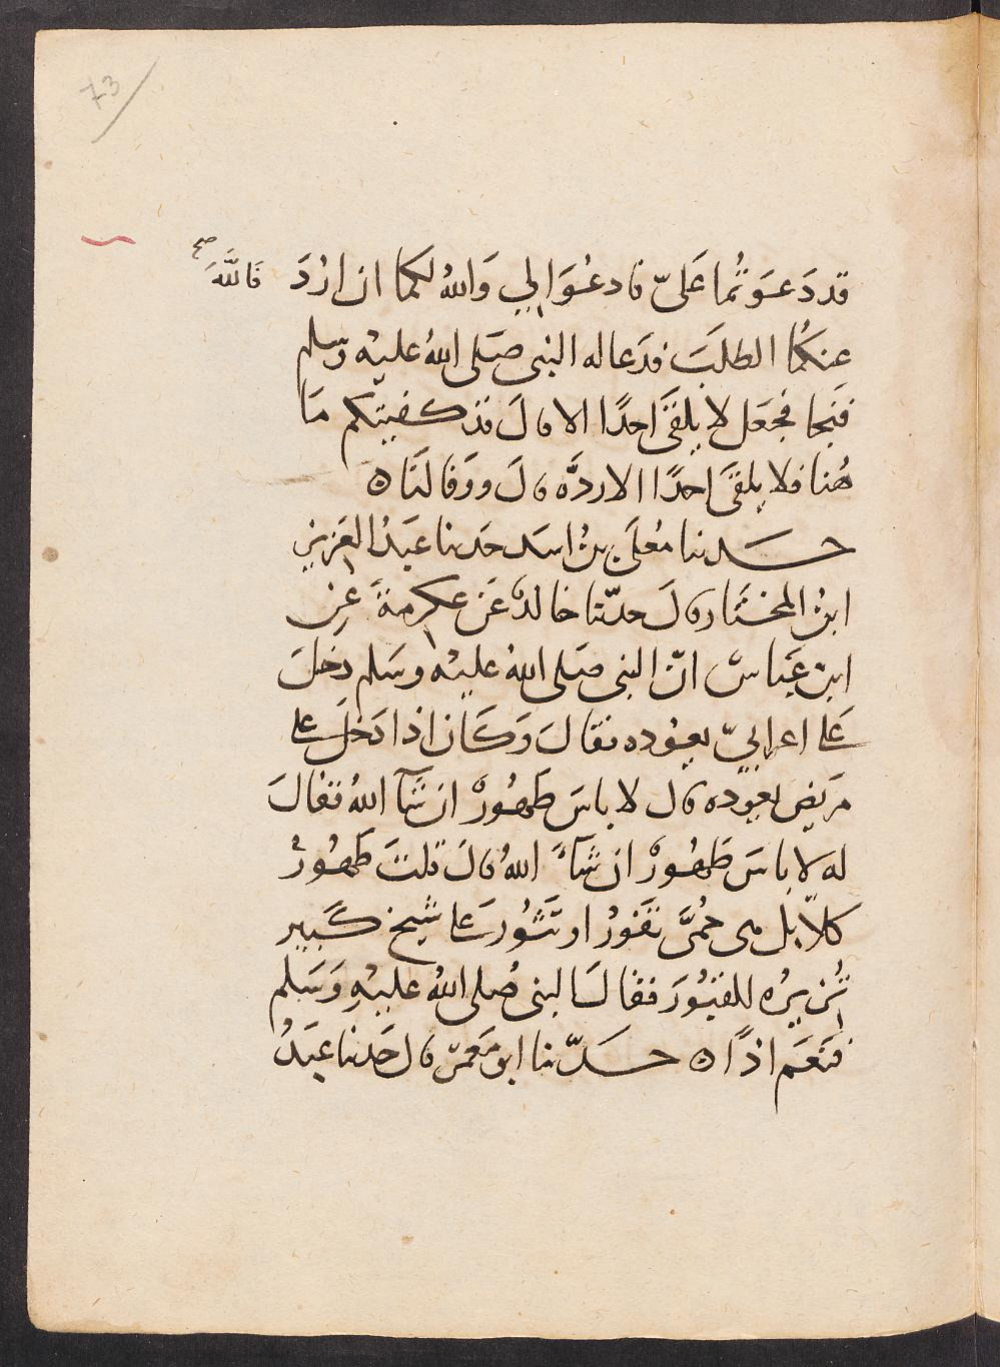 73
قد دَعَوتُما عَلىّ فادعُوَا لِي وَاللهُ لكما ان ارُدَ فَاللَّهَ صح
عنكمُا الطلَبَ فدَعا له النبى صَلى اللهُ عليْه وسلم
فنَجا فجعَل لا يلقَى احَدًا الا قالَ قد كفيتكم مَا
هُنا فلا يلقَى احدًا الا ردَّه قالَ ووَفا لنَا ه
حَدثنا مُعلَى بنُ اسَد حَدثنا عَبدُ العَزيزِ
ابنُ المختَار قالَ حدّثنا خالدٌ عَن عكرِمةَ عَنِ
ابن عَبّاسٍ انّ النبى صَلى اللهُ عليْه وسَلم دخلَ
عَلى اعرابيّ يعوُده فقالَ وَكَان اذا دَخلَ على
مرَيضٍ يعوده قال لا باسَ طَهُورٌ ان شَآ اللهُ فقالَ
له لا باسَ طَهُورٌ ان شَآءَ اللهُ قالَ قلتَ طَهُورٌ
كلاّ بل هى حُمَّى تفَورُ او تَثُورُ عَلى شيخ كَبيرٍ
تُزِيرُه القبُورَ فقالَ النبى صُلى اللهُ عليْهِ وَسَلم
فنعَم اذًا ه حَدّثنا ابو مَعمَرٍ قال حَدثنا عَبدُ